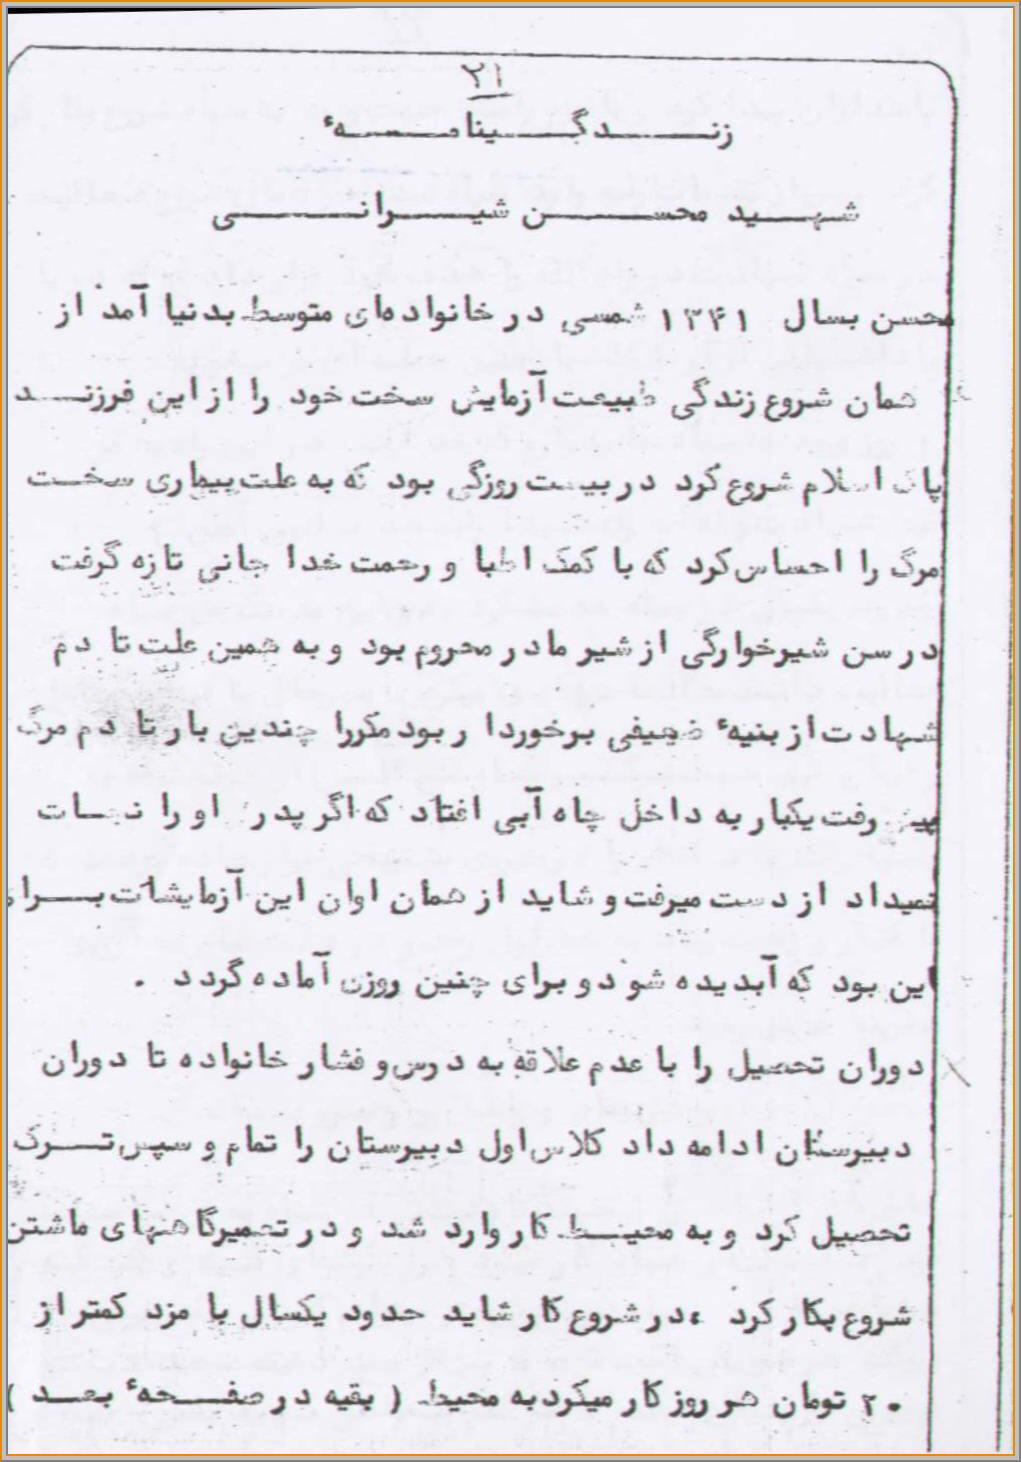 ۲۱
زندگینامهٔ
شهید محسن شیرانی
محسن بسال ۱۳۴۱ شمسی در خانواده‌ای متوسط بدنیا آمد از
همان شروع زندگی طبیعت آزمایش سخت خود را از این فرزند
پاک اسلام شروع کرد در بیست روزگی بود که به علت بیماری سخت
مرگ را احساس کرد که با کمک اطبا و رحمت خدا جانی تازه گرفت
در سن شیرخوارگی از شیر مادر محروم بود و به همین علت تا دم
شهادت از بنیهٔ ضعیفی برخوردار بود مکررا چندین بار تا دم مرگ
پیش رفت یکبار به داخل چاه آبی افتاد که اگر پدر او را نجات
نمیداد از دست میرفت و شاید از همان اوان این آزمایشات برای
این بود که آبدیده شود و برای چنین روزی آماده گردد .
دوران تحصیل را با عدم علاقه به درس و فشار خانواده تا دوران
دبیرستان ادامه داد کلاس اول دبیرستان را تمام و سپس ترک
تحصیل کرد و به محیط کار وارد شد و در تعمیرگاههای ماشین
شروع بکار کرد ، در شروع کار شاید حدود یکسال با مزد کمتر از
۲۰ تومان هر روز کار میکرد به محیط ( بقیه در صفحهٔ بعد )